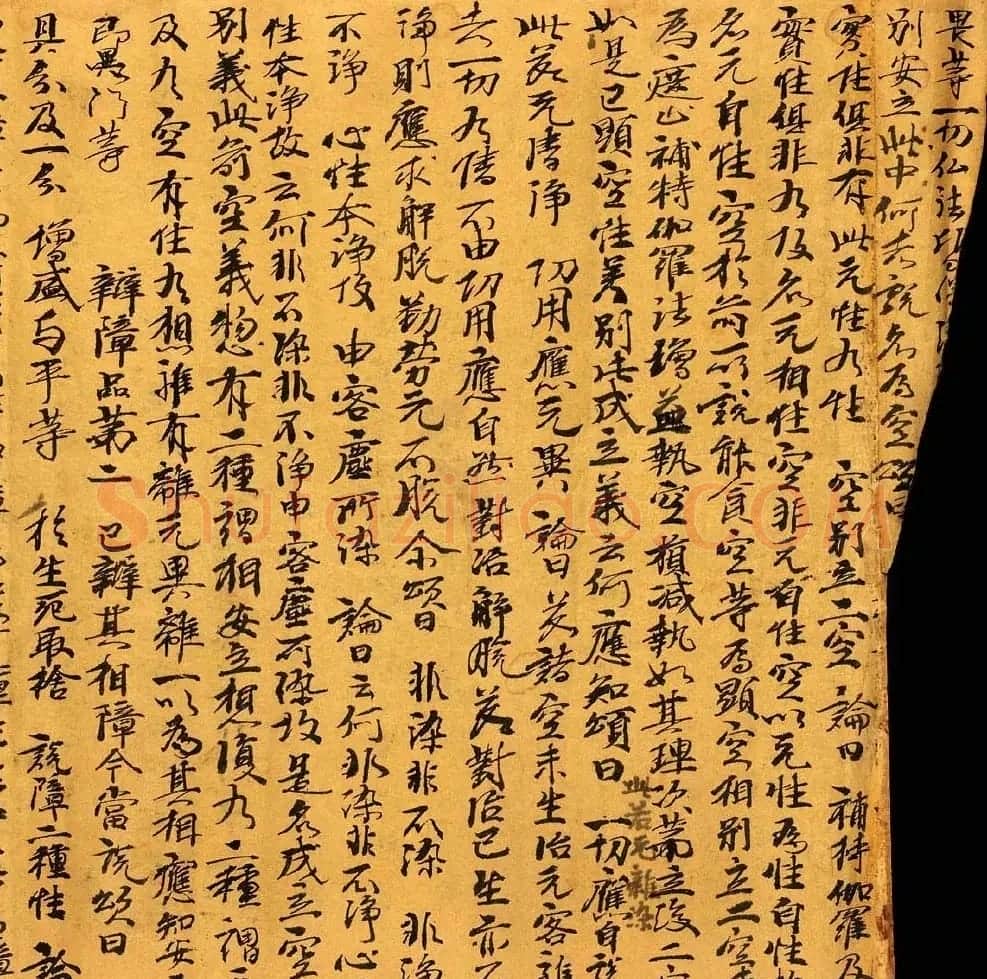 畏等一切仏法
別安立此中何者說名為空頌曰
實性俱非有 此无性有性 空別立二空 論曰 補特伽羅及
實性俱非有故名无相性空非无有性空以无性為性自性故
名无自性空於前所說能食空等為顯空相別立二空
為遮止補特伽羅法增益執空損減執如其理次第立後二空
如是已顯空性差別此成立義云何應知頌曰 此若无雜染 一切應自說
此若无清淨 功用應无異 論曰 若諸空未生治无客雜
去一切有情不由功用應自然對治解脫若對治已生亦不
淨則應求解脫勤勞无 頌曰 非染非不染 非淨
不淨 心性本淨故 由客塵所染 論曰云何非染非不淨心
性本淨故云何非不染非不淨由客塵所染故是名成立空
別義此前空義惣有二種謂相安立相復有二種謂无
及有空有性有相離有離无異離一以為其相應知安
即異門等 辯障品第二 已辯其相障今當說頌曰
具分及一分 增盛与平等 於生死取捨 說障二種性 論